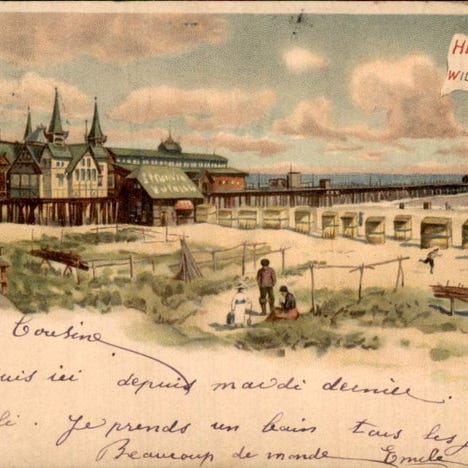 H
WIL
Cousine
uis ici depuis mardi dernier.
li. Je prends un bain tous les j
Beaucoup de monde Emile